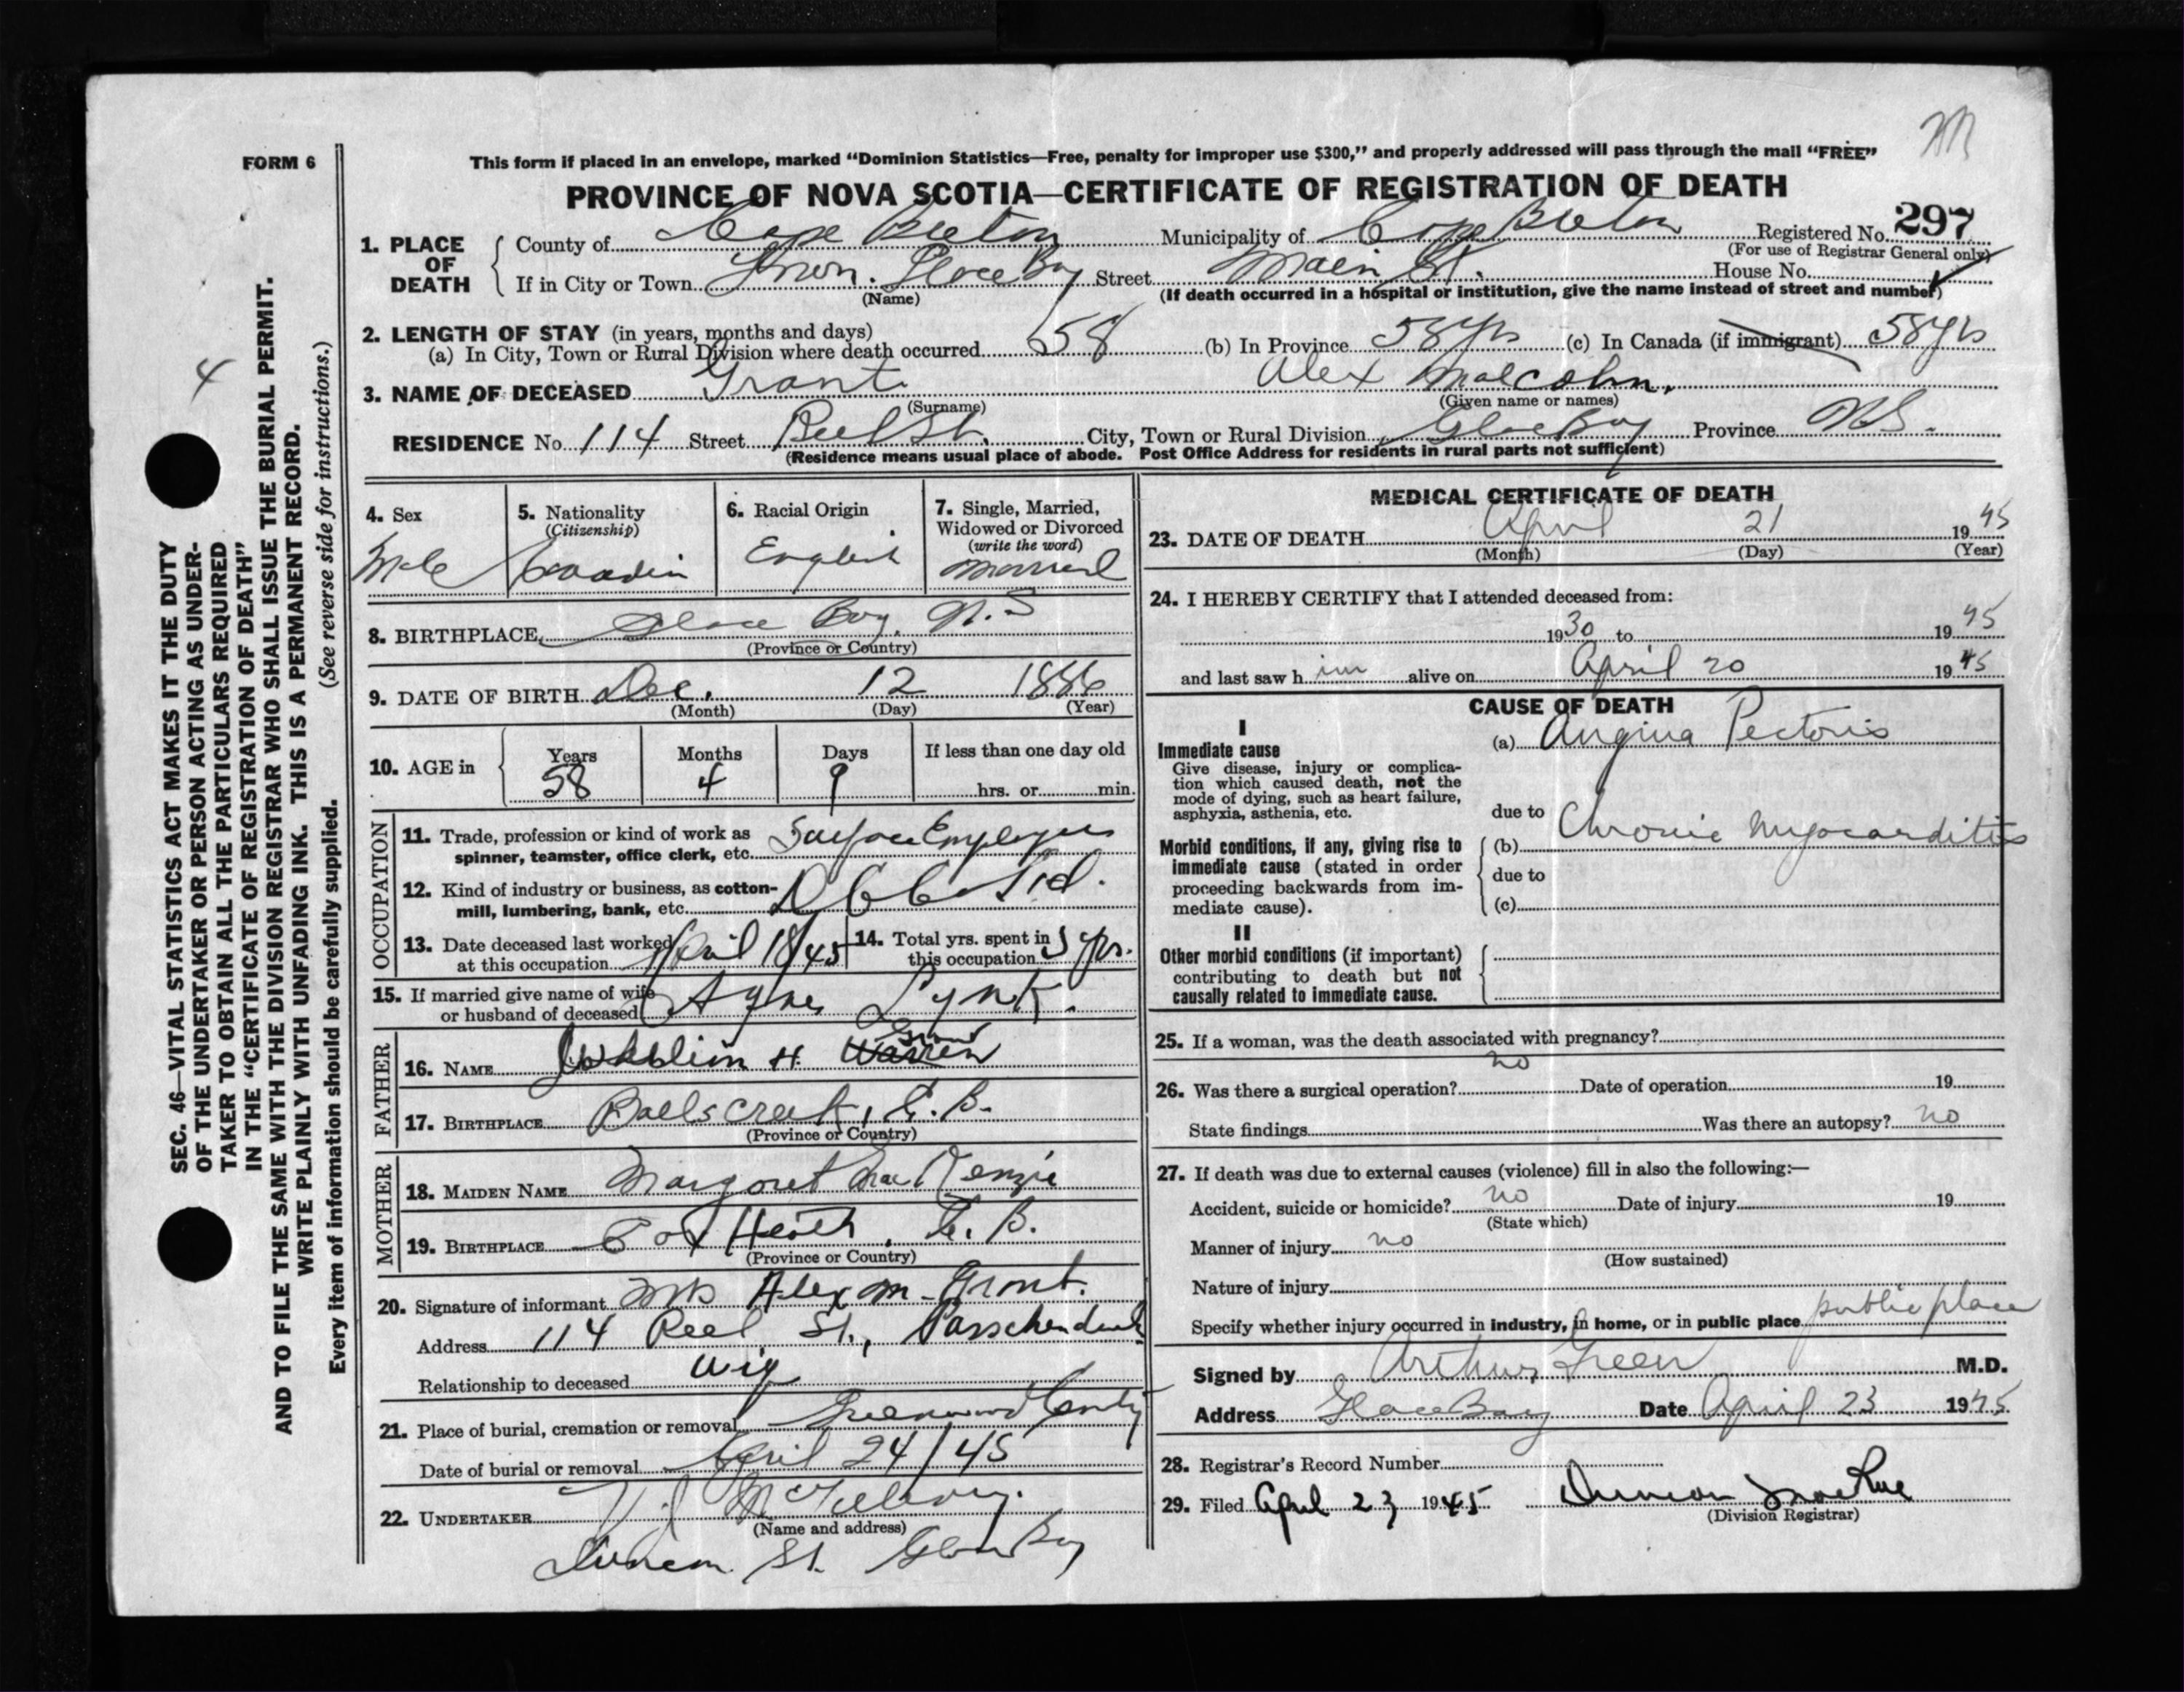 M
FORM 6
This form if placed in an envelope, marked “Dominion Statistics—Free, penalty for improper use $300,” and properly addressed will pass through the mail “FREE”
PROVINCE OF NOVA SCOTIA—CERTIFICATE OF REGISTRATION OF DEATH
1. PLACE OF DEATH
County of Cape Breton Municipality of Cape Breton Registered No. 297
(For use of Registrar General only)
If in City or Town Town. Glace Bay Street Main St. House No.
(Name) (If death occurred in a hospital or institution, give the name instead of street and number)
2. LENGTH OF STAY (in years, months and days)
(a) In City, Town or Rural Division where death occurred 58 (b) In Province 58 yrs (c) In Canada (if immigrant) 58 yrs
3. NAME OF DECEASED Grant Alex Malcolm.
(Surname) (Given name or names)
RESIDENCE No. 114 Street Reel St. City, Town or Rural Division Glace Bay Province N.S.
(Residence means usual place of abode. Post Office Address for residents in rural parts not sufficient)
4. Sex 5. Nationality (Citizenship) 6. Racial Origin 7. Single, Married, Widowed or Divorced (write the word)
Male English Married
8. BIRTHPLACE Glace Bay, N.S
(Province or Country)
9. DATE OF BIRTH Dec. 12 1886
(Month) (Day) (Year)
10. AGE in Years Months Days If less than one day old
58 4 9 hrs. or min.
OCCUPATION
11. Trade, profession or kind of work as Surface Employee
spinner, teamster, office clerk, etc.
12. Kind of industry or business, as cotton- Ltd.
mill, lumbering, bank, etc.
13. Date deceased last worked April 18/45 14. Total yrs. spent in yrs.
at this occupation this occupation
15. If married give name of wife Agnes Lynk.
or husband of deceased
FATHER
Grant
16. NAME H. Warren
17. BIRTHPLACE Balls Creek, C.B.
(Province or Country)
MOTHER
18. MAIDEN NAME Margaret MacKenzie
19. BIRTHPLACE Cox Heath, C.B.
(Province or Country)
20. Signature of informant Mrs Alex M. Grant.
Address 114 Reel St.,
Relationship to deceased wife
21. Place of burial, cremation or removal Greenwood
Date of burial or removal April 24/45
22. UNDERTAKER
(Name and address)
St. Glace Bay
MEDICAL CERTIFICATE OF DEATH
23. DATE OF DEATH April 21 1945
(Month) (Day) (Year)
24. I HEREBY CERTIFY that I attended deceased from:
1930 to 1945
and last saw him alive on April 20 1945
CAUSE OF DEATH
I
Immediate cause (a) Angina Pectoris
Give disease, injury or complica-
tion which caused death, not the
mode of dying, such as heart failure,
asphyxia, asthenia, etc. due to
Morbid conditions, if any, giving rise to (b) Chronic Myocarditis
immediate cause (stated in order due to
proceeding backwards from im-
mediate cause). (c)
II
Other morbid conditions (if important)
contributing to death but not
causally related to immediate cause.
25. If a woman, was the death associated with pregnancy?
26. Was there a surgical operation? no Date of operation 19
State findings Was there an autopsy? no
27. If death was due to external causes (violence) fill in also the following:—
Accident, suicide or homicide? no Date of injury 19
(State which)
Manner of injury no
(How sustained)
Nature of injury
Specify whether injury occurred in industry, in home, or in public place public place
Signed by Arthur Green M.D.
Address Glace Bay Date April 23 1945
28. Registrar's Record Number
29. Filed April 23 1945 Duncan MacRae
(Division Registrar)
4
SEC. 46—VITAL STATISTICS ACT MAKES IT THE DUTY
OF THE UNDERTAKER OR PERSON ACTING AS UNDER-
TAKER TO OBTAIN ALL THE PARTICULARS REQUIRED
IN THE “CERTIFICATE OF REGISTRATION OF DEATH”
AND TO FILE THE SAME WITH THE DIVISION REGISTRAR WHO SHALL ISSUE THE BURIAL PERMIT.
WRITE PLAINLY WITH UNFADING INK. THIS IS A PERMANENT RECORD.
Every item of information should be carefully supplied. (See reverse side for instructions.)